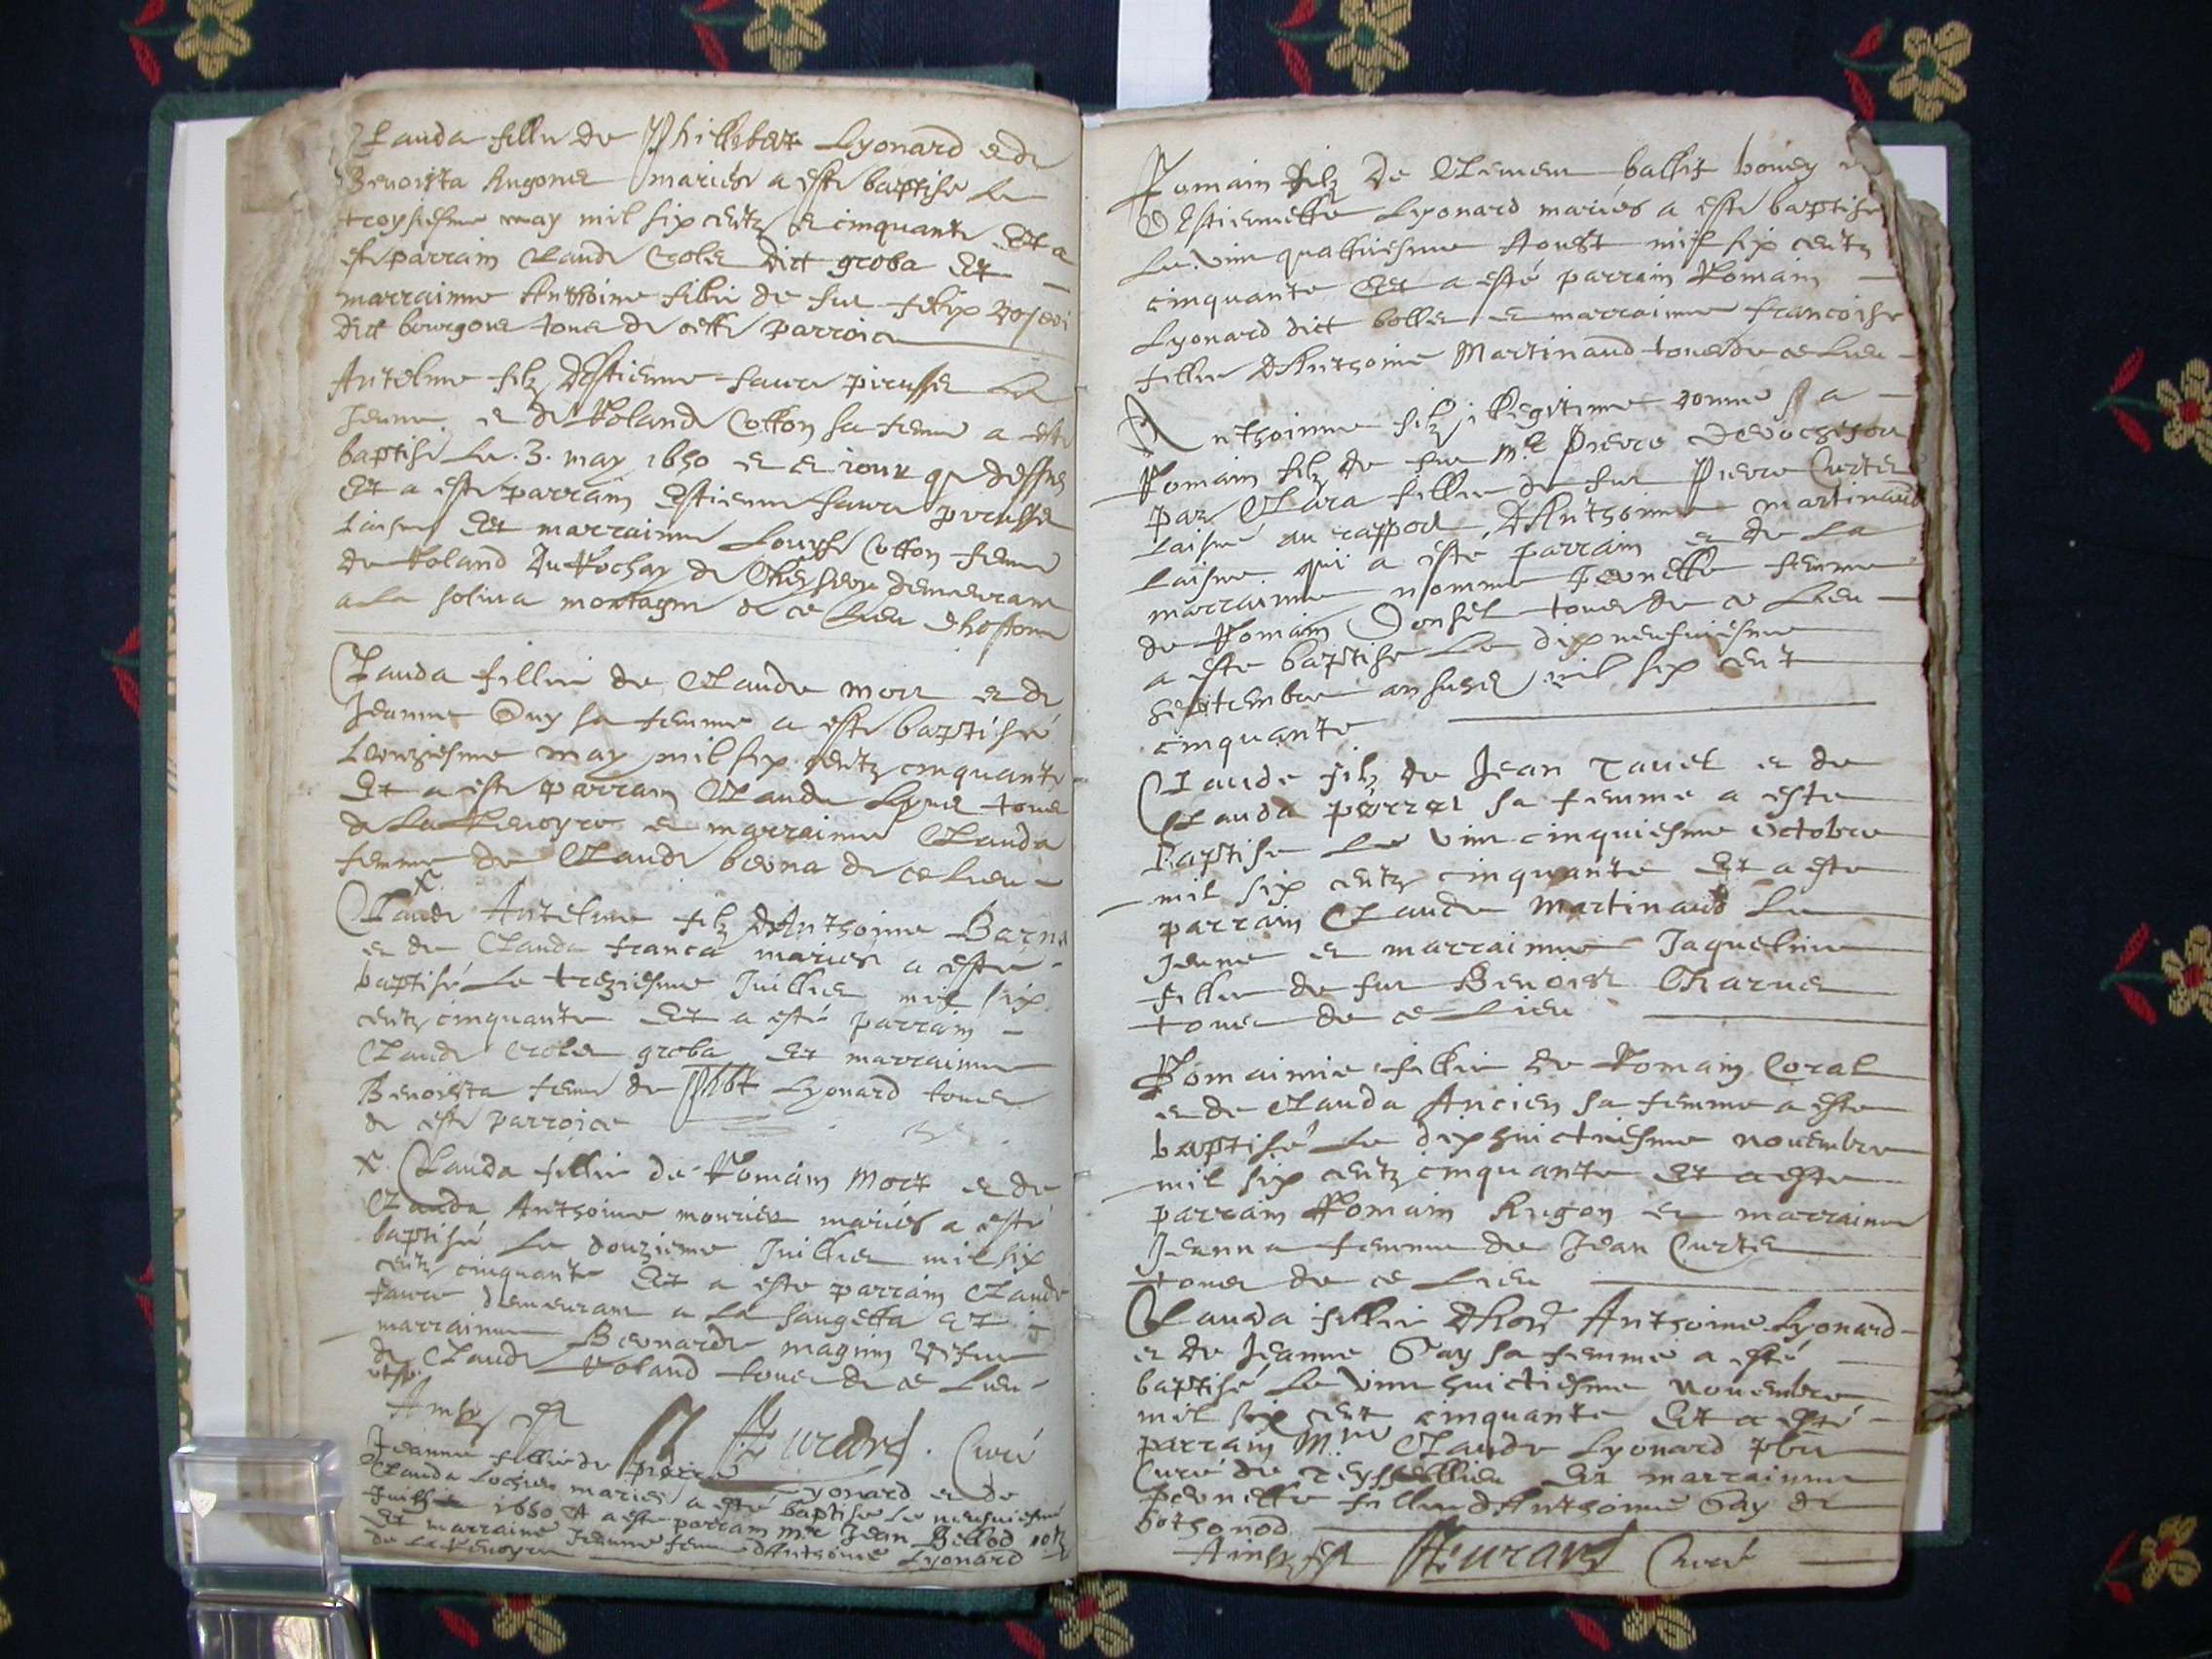 Clauda fillie de Phillebert Lyonard et de
Benoista Hugonet mariés a esté baptisé le
troysiesme may mil six centz et cinquante Et a
esté parrain Claude Crolet dict groba Et
marrainne Anthoine fillie de feu felix
dict bourgone tous de ceste parroice
Antelme filz destienne faure pirasset le
Jeune et de Rolande Cotton sa feme a esté
baptisé le .3. may 1650 et ce iour que dessus
Et a esté parrain Estienne faure pirasset
laisne Et marrainne Louyse Cotton feme
de Roland du Rochay de demeurant
a la montagne de ce lieu dhostone
Clauda fillie de Claude mort et de
Jeanne Guy sa femme a esté baptisé
Lonziesme may mil six centz cinquante
Et a esté parrain Claude Lyret tous
de la et marrainne Clauda
femme de Claude berna de ce lieu
x
Claude Antelme filz dAnthoine Barna
et de Clauda franca mariés a esté
baptisé le treziesme Juillet mil six
centz cinquante Et a esté parrain
Claude Crolet groba Et marrainne
Benoista feme de Phbt Lyonard tous
de ceste parroice
x. Clauda fillie de Romain Mort et de
Clauda Anthoine mourier mariés a esté
baptisé le douzieme Juillet mil six
centz cinquante Et a esté parrain Claude
faure demeurant a la saugetta Et
marrainne Bernarde magnin vefve
de Claude Roland tous de ce lieu
Ainsy est Heurard. Curé
Jeanne fillie de pierre Lyonard et de
Clauda Lochier mariés a esté baptisé le neufviesme
Juillet 1650 Et a esté parrain mre Jean Bellod
Et marraine Jeanne feme dAnthoine Lyonard
de la
Romain filz de Clement ballit bouey et
dEstiennette Lyonard mariés a esté baptisé
Le vint quattriesme Aoust mil six centz
cinquante Et a esté parrain Romain
Lyonard dict bollet et marrainne francoise
fillie dAnthoine Martinand tous de ce lieu
Anthoinne filz illegitime donné a
Romain filz de feu Mre Pierre
par Clara fillie de feu Pierre Curtet
laisné au rapport dAnthoinne martinand
laisne qui a esté parrain et de la
marrainne nommé pernette femme
de Romain Donsel tous de ce lieu
a esté baptisé le dixneufviesme
septembre an susdit mil six cent
cinquante
Claude filz de Jean Tavel et de
Clauda perret sa femme a esté
Baptisé Le vint cinquiesme octobre
mil six centz cinquante Et a esté
parrain Claude Martinand le
Jeune et marrainne Jaquelinne
fillie de feu Benoist Charvet
tous de ce lieu
Romainne fillie de Romain Coral
et de Clauda Ancien sa femme a esté
baptisé Le dixhuictiesme novembre
mil six centz cinquante Et a esté
parrain Romain Hugon et marrainne
Jeanna femme de Jean Curtet
tous de ce lieu
Clauda fillie dhon. Anthoine Lyonard
et de Jeanne Gay sa femme a esté
baptisé Le vint huictiesme Novembre
mil six cent cinquante Et a esté
parrain Mre Claude Lyonard pbre
Curé de Et marrainne
pernette fillie dAnthoinne Gay de
bothonod
Ainsy est Heurard Curé